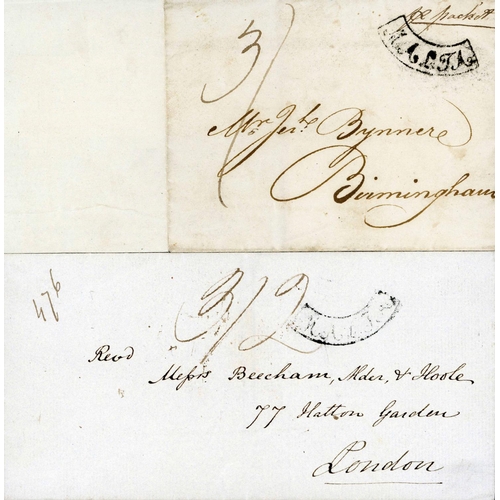 pr packet
MALTA
3/
Mr Josh Bynnere
Birmingham
476
3/2
MALTA
Revd
Messrs Beecham, Alder, & Hoole
77 Hatton Garden
London